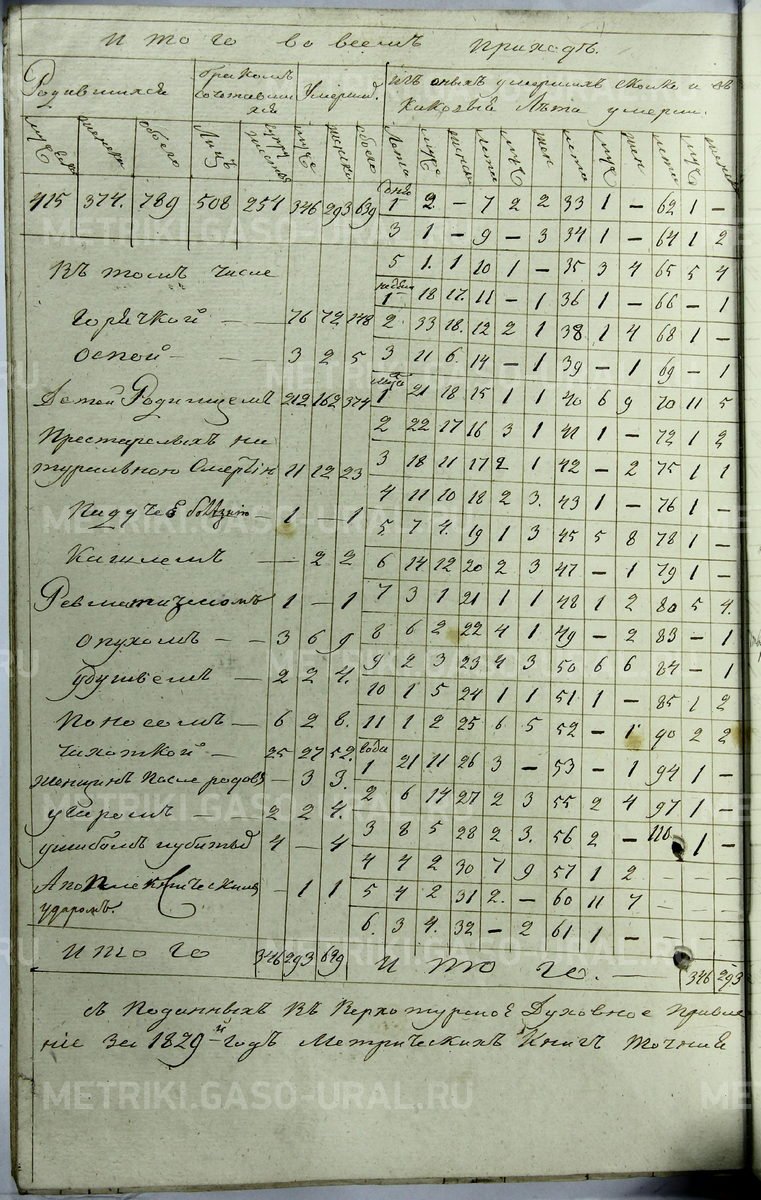 Итого во всемъ приходѣ.
Родившихся браком сочетавшихся Умерш. Изъ оныхъ умершихъ сколко и въ
каковыя Лѣта умерли.
муж женска обоего Лицъ муж женска обоего Лета муж женск Лета муж жен лета муж жен лета муж женск
415 374. 789 508 254 346 293 639 дней 1 2 – 7 2 2 33 1 – 62 1 –
3 1 – 9 – 3 34 1 – 64 1 2
Въ томъ числе 5 1. 1 10 1 – 35 3 4 65 5 4
недели 1 18 17. 11 – 1 36 1 – 66 – 1
Горячкой – – 76 72 148 2 33 18. 12 2 1 38 1 4 68 1 –
Оспой – – – 3 2 5 3 11 6. 14 – 1 39 – 1 69 – 1
Детей Родимцемъ 212 162 374 1 21 18 15 1 1 40 6 9 70 11 5
Престарелыхъ на 2 22 17 16 3 1 41 1 – 72 1 2
туральною Смертiю 11 12 23 3 18 11 17 2 1 42 – 2 75 1 1
4 11 10 18 2 3. 43 1 – 76 1 –
Падучей болезнию 1 – 1 5 7 4. 19 1 3 45 5 8 78 1 –
Кашлемъ – 2 2 6 14 12 20 2 3 47 – 1 79 1 –
Ревматизмомъ 1 – 1 7 3 1 21 1 1 48 1 2 80 5 4.
опухолъ – – 3 6 9 8 6 2 22 4 1 49 – 2 83 – 1
удушьемъ – 2 2 4. 9 2 3 23 4 3 50 6 6 84 – 1
10 1 5 24 1 1 51 1 – 85 1 2
Поносомъ – 6 2 8. 11 1 2 25 6 5 52 – 1 90 2 2
Чахоткой – 25 27 52. года 1 21 11 26 3 – 53 – 1 94 1 –
женщинъ после родовъ – 3 3. 2 6 14 27 2 3 55 2 4 97 1 –
угаромъ – 2 2 4. 3 8 5 28 2 3. 56 2 – 110 1 –
ушибомъ и убитыхъ 4 – 4 4 4 2 30 7 9 57 1 2 – – –
Апоплексическимъ – 1 1 5 4 2 31 2. – 60 11 7 – – –
ударомъ. 6. 3 4. 32 – 2 61 1 – – – –
Итого 346 293 639 Итого. – 346 293
съ Поданныхъ Въ Верхотурское Духовное Правле
ние За 1829-й годъ Метрическихъ Книгъ Точние
METRIKI.GASO-URAL.RU